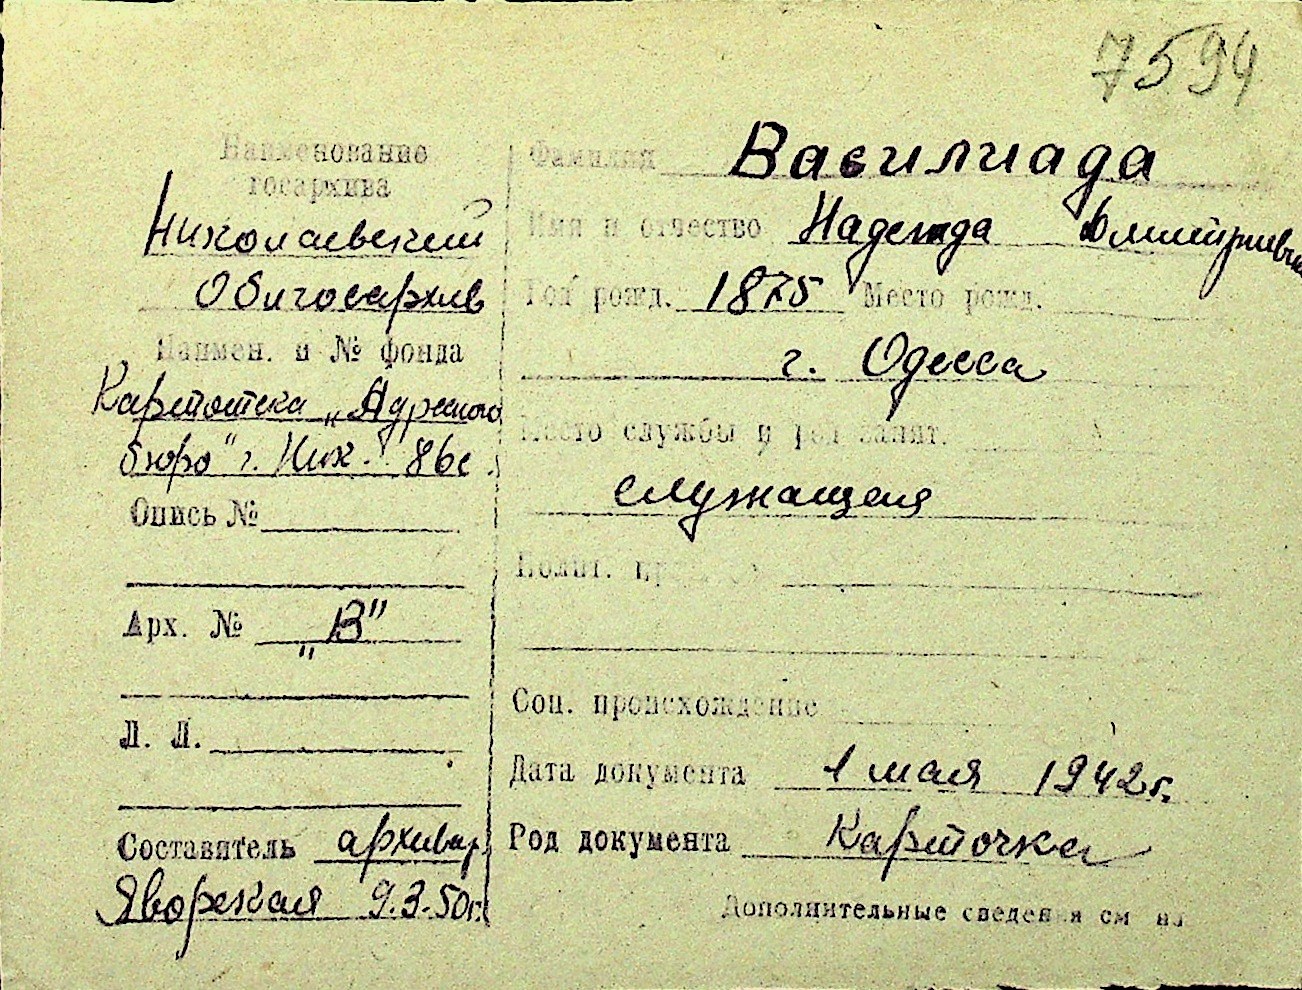 7594
Наименование
госархива
Николаевский
Облгосархив
Наимен. и № фонда
Картотека „Адресного
бюро" г. Ник. 86с.
Опись №
Арх. № „В"
Л. Л.
Составитель архивар.
Яворская 9.3.50г.
Фамилия Василиада
Имя и отчество Надежда Дмитриевна
Год рожд. 1875 Место рожд.
г. Одесса
Место службы и род занят.
служащая
Полит.
Соц. происхождение
Дата документа 1 мая 1942г.
Род документа Карточка
Дополнительные сведения см